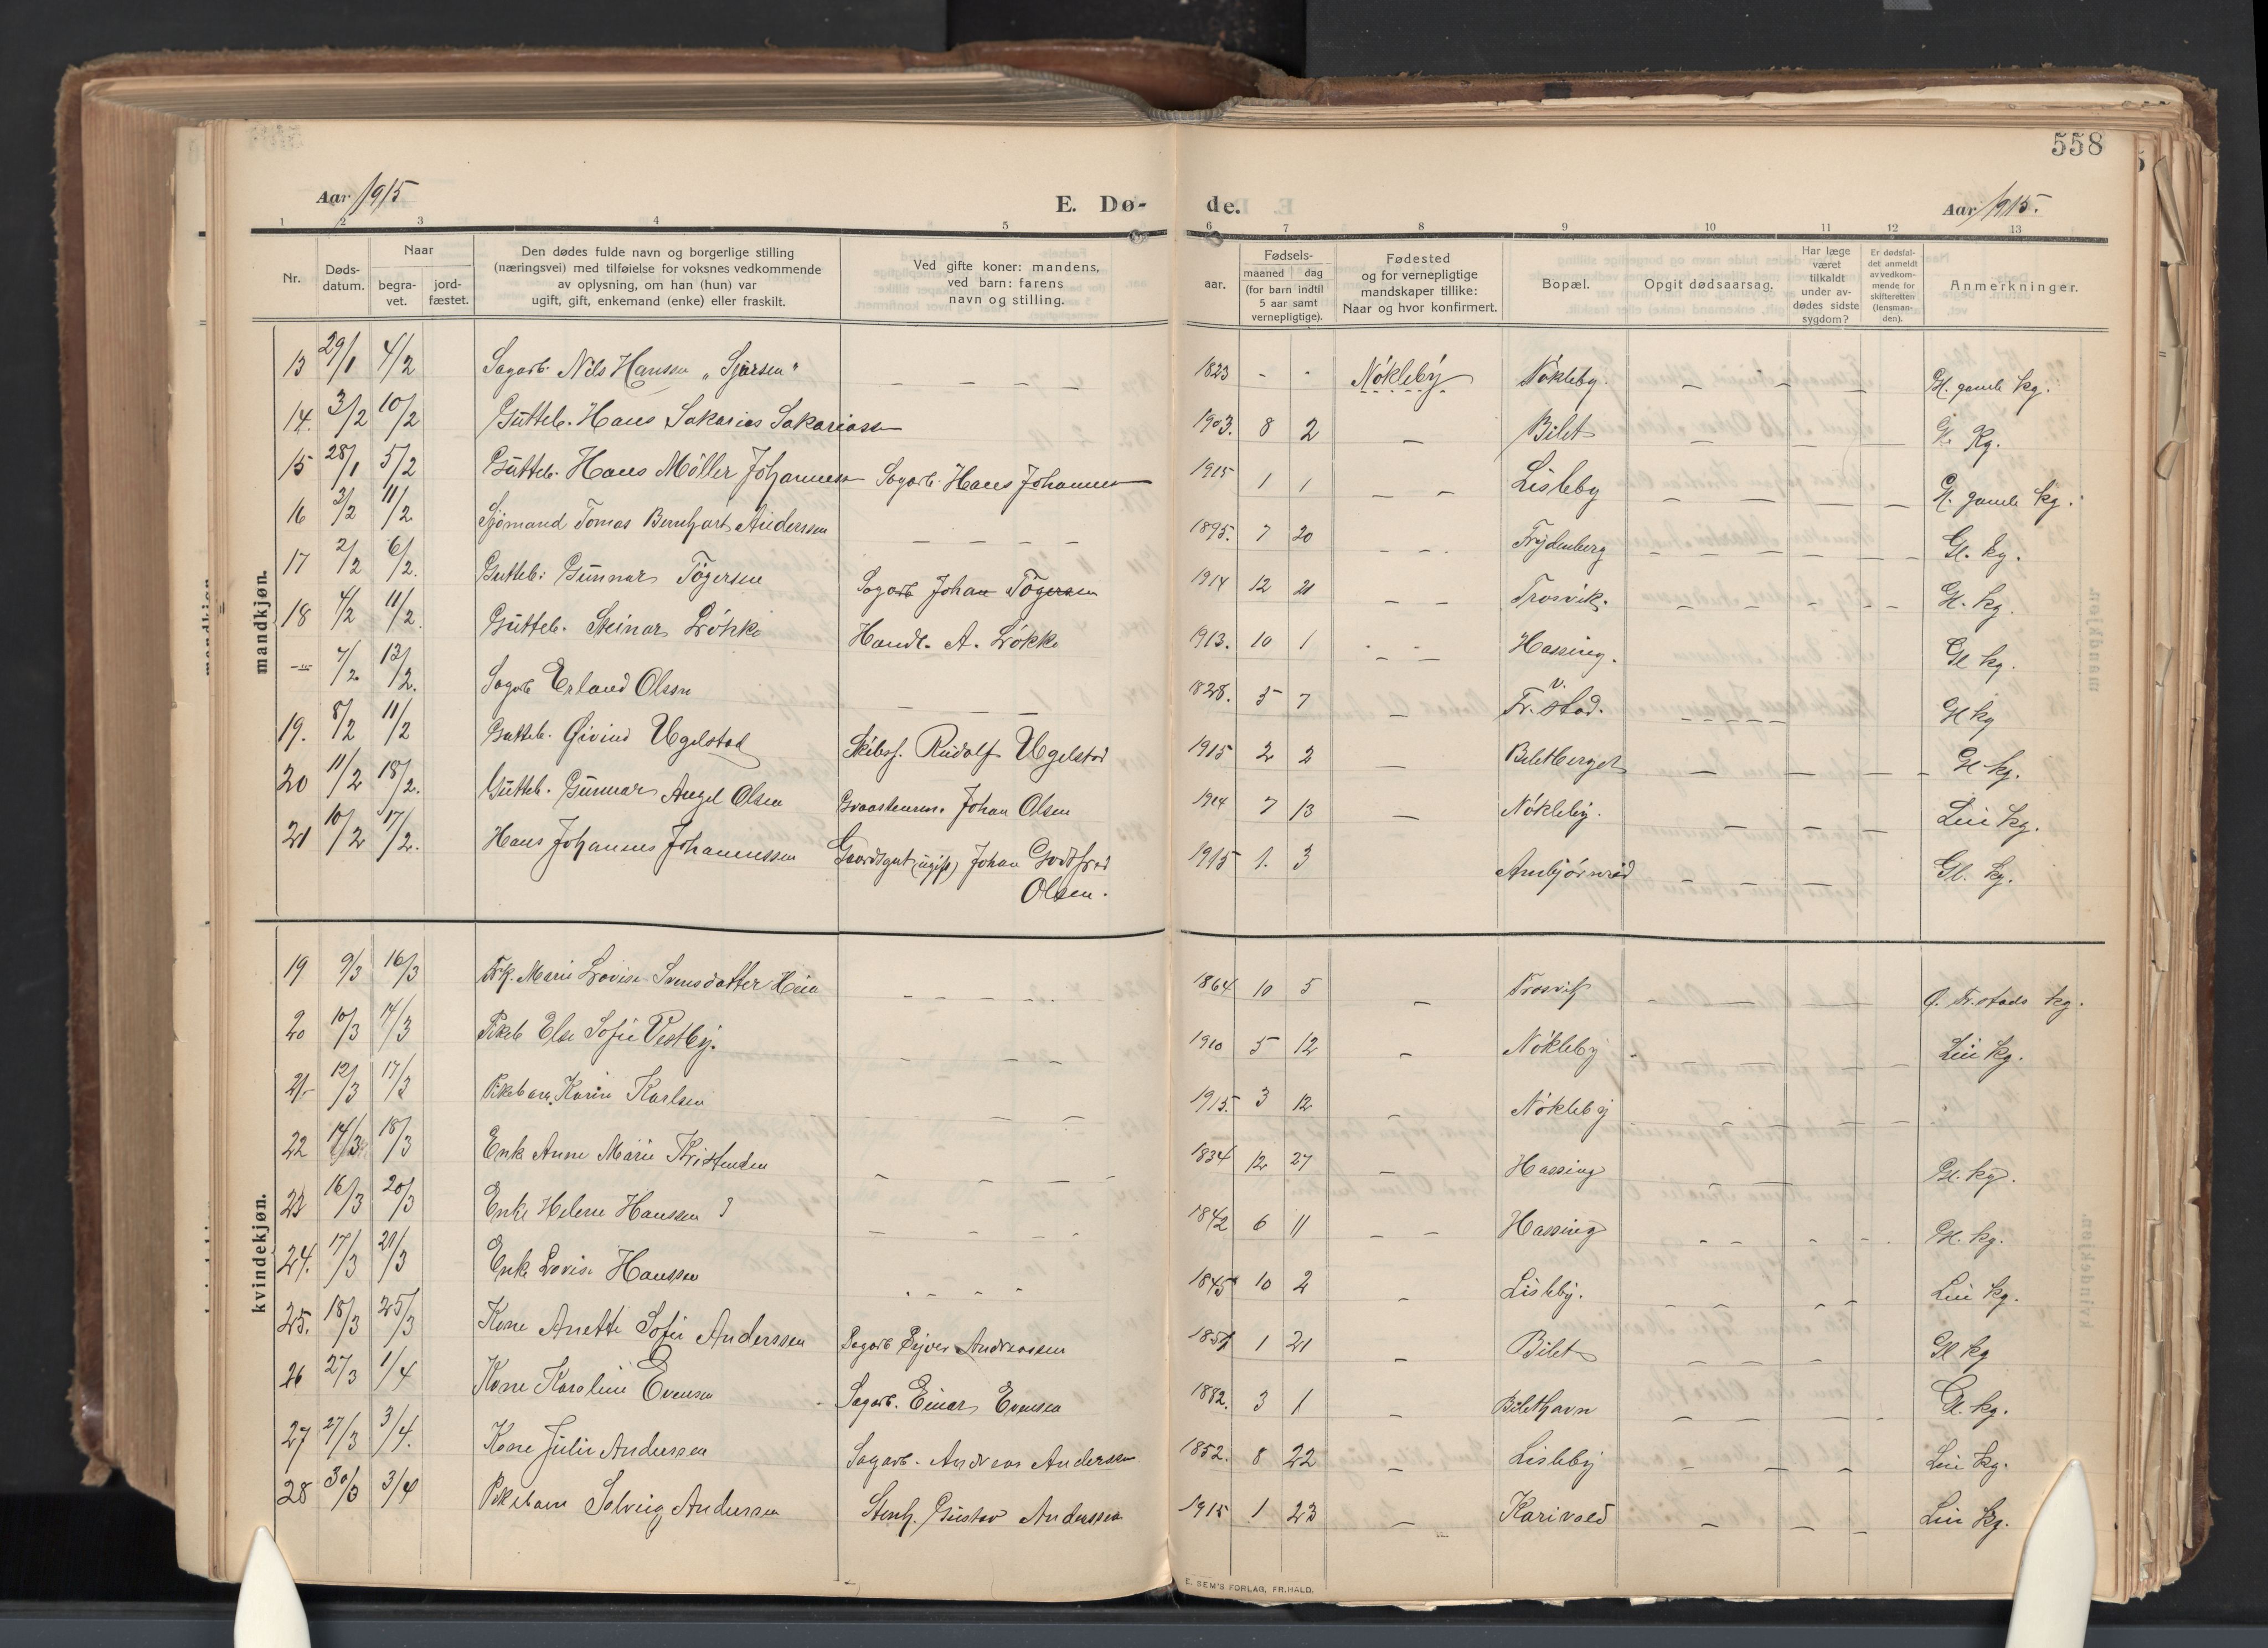 558
Aar 1915
E. Dø-
de.
Aar 1915.
1 2 3 4 5 6 7 8 9 10 11 12 13
Nr.
Døds-
datum.
Naar
begra-
vet.
jord-
fæstet.
Den dødes fulde navn og borgerlige stilling
(næringsvei) med tilføielse for voksnes vedkommende
av oplysning, om han (hun) var
ugift, gift, enkemand (enke) eller fraskilt.
Ved gifte koner: mandens,
ved barn: farens
navn og stilling.
aar.
Fødsels-
maaned dag
(for barn indtil
5 aar samt
vernepligtige).
Fødested
og for vernepligtige
mandskaper tillike:
Naar og hvor konfirmert.
Bopæl.
Opgit dødsaarsag.
Har læge
været
tilkaldt
under av-
dødes sidste
sygdom?
Er dødsfal-
det anmeldt
av vedkom-
mende for
skifteretten
(lensman-
den).
Anmerkninger.
mandkjøn.
13 29/1 4/2 Sagarb. Nils Hanssen „Sjursen" — — — — 1823 - - Nökleby Nökleby. — — — Gl. gamle kg.
14. 3/2 10/2 Gutteb. Hans Sakarias Sakariassen 1903. 8 2 — Bilet — — — Kg.
15 28/1 5/2 Gutteb. Hans Möller Johannessen Sagarb. Hans Johannessen 1915 1 1 — — Lisleby — — — — Gl. gamle kg.
16 3/2 11/2 Sjömand Tomas Bernhart Anderssen — — — — 1895. 7 20 — — Frydenberg — — — — Gl. kg.
17 2/2 6/2. Gutteb. Gunnar Tögersen Sagarb Johan Tögersen 1914 12 21 — — Trosvik. — — — — Gl. kg.
18 4/2 11/2. Gutteb. Steinar Lökke Handl. A. Lökke 1913. 10 1 — — Hassing. Gl kg.
—"— 7/2 13/2. Sagarb Erland Olsen — — — 1828. 5 7 — v. Fr.stad. — — — — Gl kg
19. 8/2 11/2 Gutteb. Øivind Ugelstad Skibsf. Rudolf Ugelstad 1915 2 2 — Biletberget — — — — Gl kg.
20 11/2 18/2. Gutteb. Gunnar Angel Olsen Graastensm. Johan Olsen 1914 7 13 — Nökleby. — — — Lei kg.
21 10/2 17/2. Hans Johannes Johannessen Gaardsgut (ugift) Johan Godtfred
Olsen. 1915 1. 3 Ambjörnröd — — — Gl. kg.
kvindekjøn.
19 9/3 16/3 Frk. Marie Lovise Svensdatter Heia — — — — 1864 10 5 — Trosvik — — — — Ø. Fr.stads kg.
20 10/3 14/3 Pikeb Else Sofie Vestby. — — — — 1910 5 12 — Nökleby — — — — Lei kg.
21 12/3 17/3 Pikebarn Karin Karlsen — — — 1915. 3 12 — Nökleby — — — —
22 14/3 18/3 Enke Anne Marie Kristensen — — — — 1834 12 27 — Hassing Gl. kg.
23 16/3 20/3 Enke Helene Hanssen — — — — 1842 6 11 — — Hassing — — — — Gl. kg.
24. 17/3 21/3 Enke Lovise Hanssen - - - - 1845 10 2 — Lisleby. — — — — Lei kg.
25. 18/3 25/3 Kone Anette Sofie Anderssen Sagarb Sejver Andreassen 1851 1 21 — Bilet — — — Gl kg
26 27/3 1/4 Kone Karoline Evensen Sagarb. Einar Evensen 1882. 3 1 — Bilethavn — — — — Gl. kg.
27 27/3 3/4. Kone Julie Andersen Sagarb. Andreas Anderssen 1852. 8 22 — Lisleby — — — Lei kg.
28 30/3 3/4 Pikebarn Solveig Andersen Stenh. Gustav Anderssen 1915 1 23 — Karivold — — — Lei kg.
E. SEM'S FORLAG, FR.HALD.